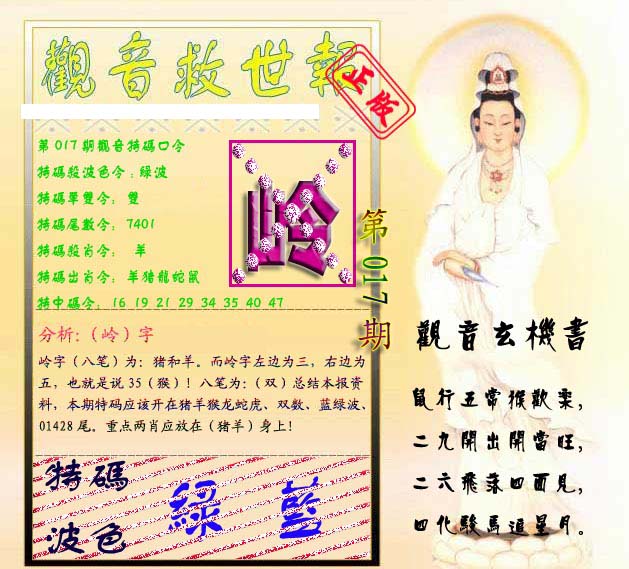 觀音救世報
正版
第017期觀音特碼口令
特碼殺波色令：綠波
特碼單雙令：雙
特碼尾數令：7401
特碼殺肖令：羊
特碼出肖令：羊猪龍蛇鼠
特中碼令：16 19 21 29 34 35 40 47
岭
第017期
分析:（岭）字
岭字（八笔）为：猪和羊。而岭字左边为三，右边为
五，也就是说 35（猴）！八笔为：（双）总结本报资
料，本期特码应该开在猪羊猴龙蛇虎、双数、蓝绿波、
01428 尾。重点两肖应放在（猪羊）身上！
特碼
波色
綠 藍
觀音玄機書
鼠行五常猴歡樂，
二九開出開當旺，
二六飛落四面見，
四化駿馬逗星月。